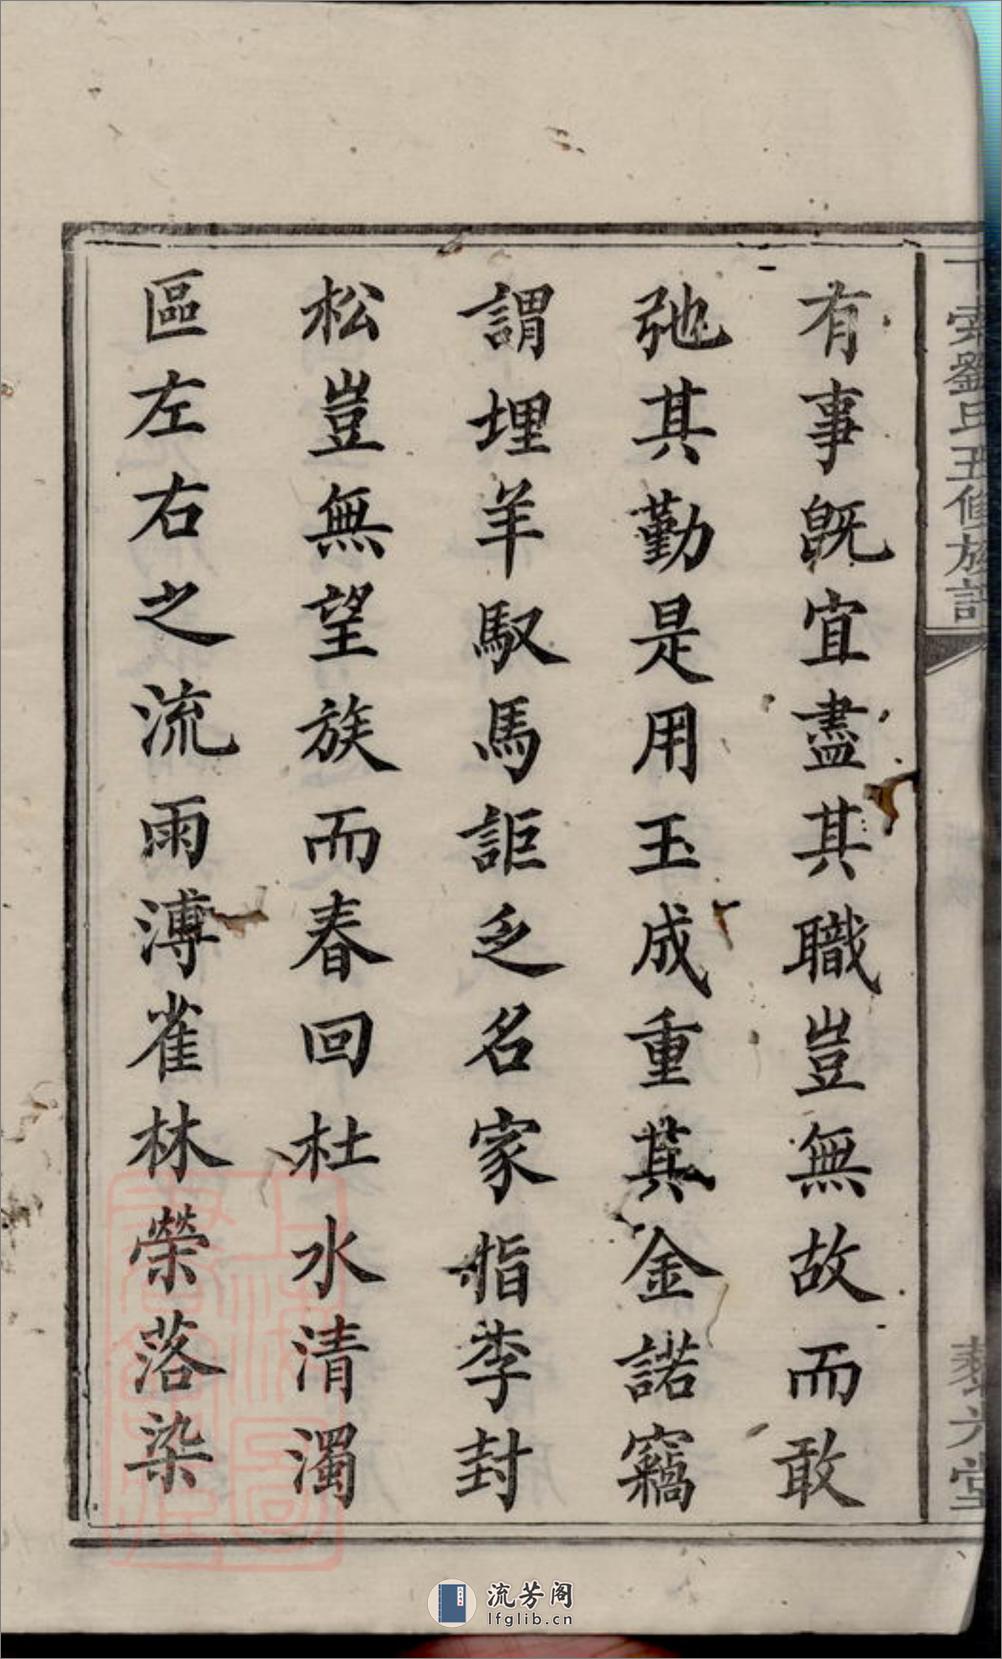 劉氏五修族譜
藜六堂
有事旣宜盡其職豈無故而敢
弛其勤是用玉成重其金諾竊
謂埋羊馭馬詎乏名家指李封
松豈無望族而春回杜水清濁
區左右之流雨溥雀林榮落染
流芳阁
lfglib.cn